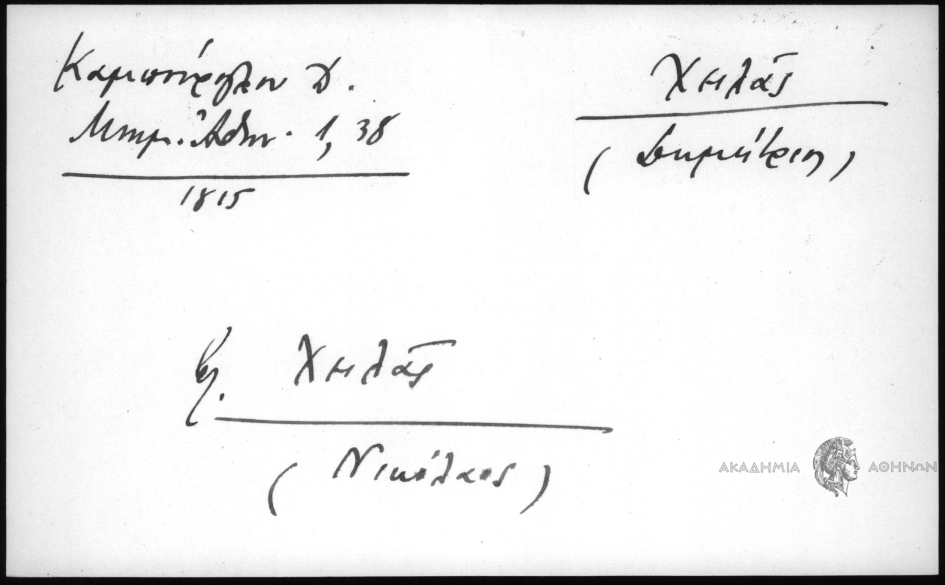 Καμπούρογλου Δ.
Μνημ. Ἀθην. 1, 38
1815
Χωλᾶς
(Δημήτριος)
βλ. Χωλᾶς
(Νικόλαος)
ΑΚΑΔΗΜΙΑ ΑΘΗΝΩΝ